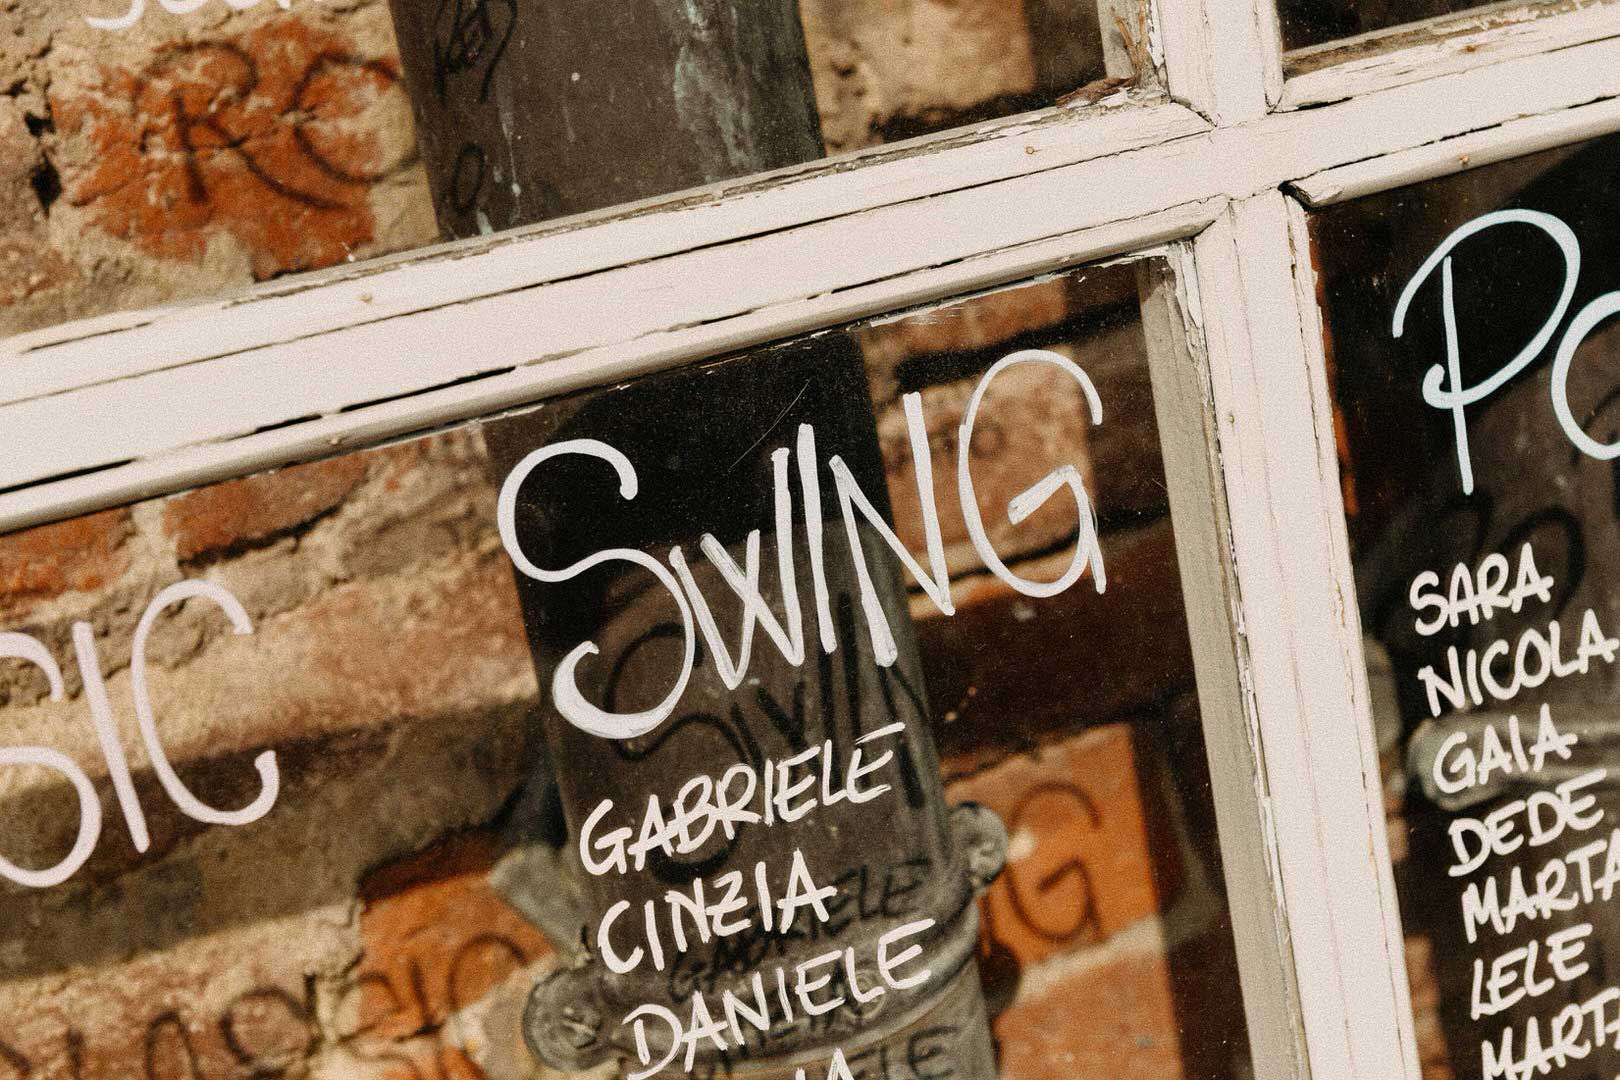 SWING
GABRIELE
CINZIA
DANIELE
SARA
NICOLA
GAIA
DEDE
MARTA
LELE